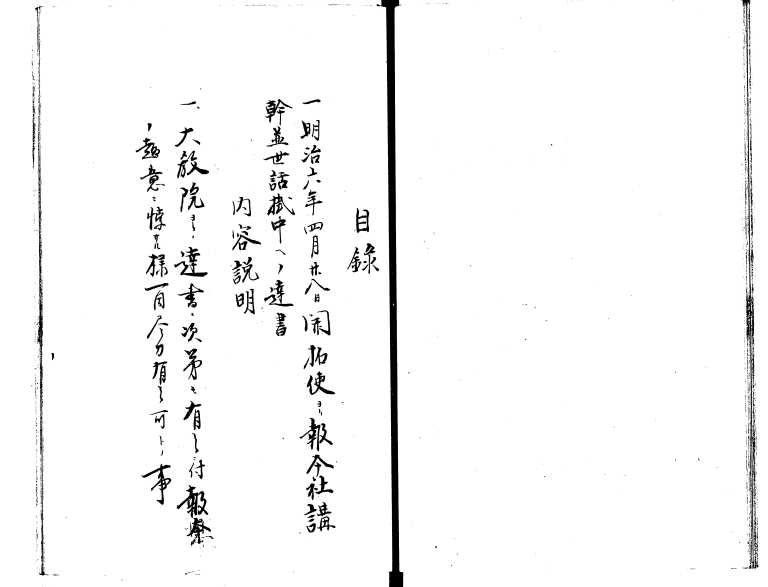 目錄
一明治六年四月廿八日開拓使ヨリ報今社講
幹並世話掛中ヘノ達書
内容説明
一、大教院ヨリ達書ノ次第モ有之付報祭
ノ趣意ニ悖ラザル様一同尽力有之可キ事